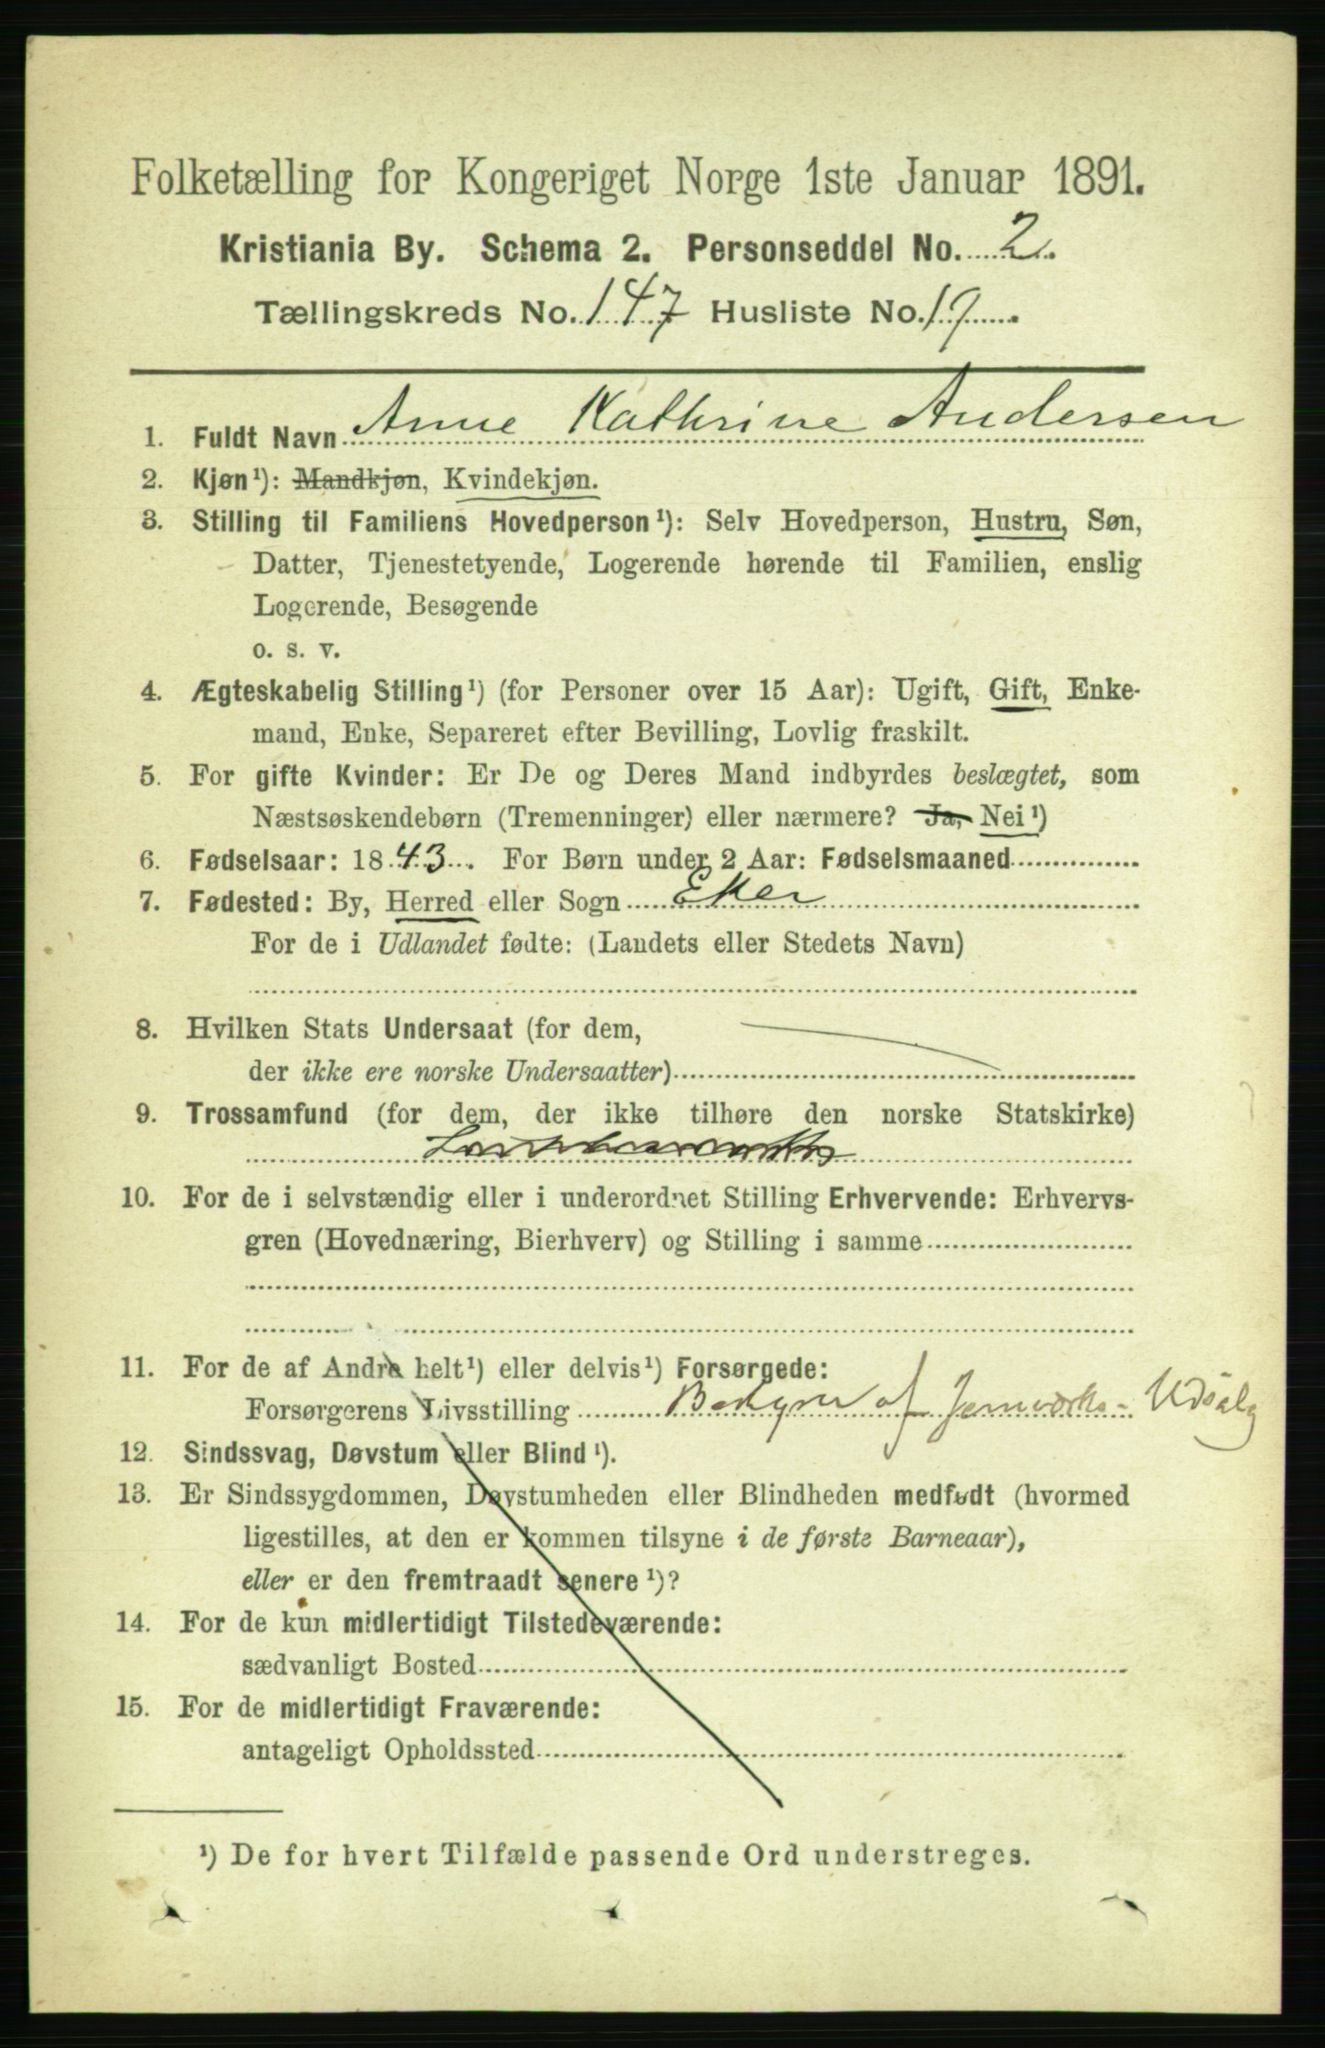 Folketælling for Kongeriget Norge 1ste Januar 1891.
Kristiania By. Schema 2. Personseddel No. 2.
Tællingskreds No. 147 Husliste No. 19.
1. Fuldt Navn Anne Kathrine Andersen
2. Kjøn¹): Mandkjøn, Kvindekjøn.
3. Stilling til Familiens Hovedperson¹): Selv Hovedperson, Hustru, Søn,
Datter, Tjenestetyende, Logerende hørende til Familien, enslig
Logerende, Besøgende
o. s. v.
4. Ægteskabelig Stilling¹) (for Personer over 15 Aar): Ugift, Gift, Enke-
mand, Enke, Separeret efter Bevilling, Lovlig fraskilt.
5. For gifte Kvinder: Er De og Deres Mand indbyrdes beslægtet, som
Næstsøskendebørn (Tremenninger) eller nærmere? Ja, Nei¹)
6. Fødselsaar: 1843. For Børn under 2 Aar: Fødselsmaaned
7. Fødested: By, Herred eller Sogn Eker
For de i Udlandet fødte: (Landets eller Stedets Navn)
8. Hvilken Stats Undersaat (for dem,
der ikke ere norske Undersaatter)
9. Trossamfund (for dem, der ikke tilhøre den norske Statskirke)
10. For de i selvstændig eller i underordnet Stilling Erhvervende: Erhvervs-
gren (Hovednæring, Bierhverv) og Stilling i samme
11. For de af Andre helt¹) eller delvis¹) Forsørgede:
Forsørgerens Livsstilling Bestyrer af Jernværks-Udsalg
12. Sindssvag, Døvstum eller Blind¹).
13. Er Sindssygdommen, Døvstumheden eller Blindheden medfødt (hvormed
ligestilles, at den er kommen tilsyne i de første Barneaar),
eller er den fremtraadt senere¹)?
14. For de kun midlertidigt Tilstedeværende:
sædvanligt Bosted
15. For de midlertidigt Fraværende:
antageligt Opholdssted
¹) De for hvert Tilfælde passende Ord understreges.